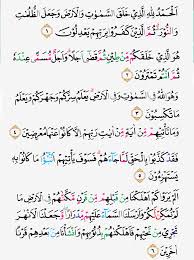 اَلْحَمْدُ لِلّٰهِ الَّذِيْ خَلَقَ السَّمٰوٰتِ وَالْاَرْضَ وَجَعَلَ الظُّلُمٰتِ
وَالنُّوْرَ ثُمَّ الَّذِيْنَ كَفَرُوْا بِرَبِّهِمْ يَعْدِلُوْنَ ١
هُوَ الَّذِيْ خَلَقَكُمْ مِّنْ طِيْنٍ ثُمَّ قَضٰٓى اَجَلًا وَاَجَلٌ مُّسَمًّى عِنْدَهٗ
ثُمَّ اَنْتُمْ تَمْتَرُوْنَ ٢
وَهُوَ اللّٰهُ فِى السَّمٰوٰتِ وَفِى الْاَرْضِ يَعْلَمُ سِرَّكُمْ وَجَهْرَكُمْ وَيَعْلَمُ
مَا تَكْسِبُوْنَ ٣
وَمَا تَأْتِيْهِمْ مِّنْ اٰيَةٍ مِّنْ اٰيٰتِ رَبِّهِمْ اِلَّا كَانُوْا عَنْهَا مُعْرِضِيْنَ ٤
فَقَدْ كَذَّبُوْا بِالْحَقِّ لَمَّا جَاۤءَهُمْ فَسَوْفَ يَأْتِيْهِمْ اَنْۢبٰۤؤُا مَا كَانُوْا بِهٖ
يَسْتَهْزِءُوْنَ ٥
اَلَمْ يَرَوْا كَمْ اَهْلَكْنَا مِنْ قَبْلِهِمْ مِّنْ قَرْنٍ مَّكَّنّٰهُمْ فِى الْاَرْضِ مَا
لَمْ نُمَكِّنْ لَّكُمْ وَاَرْسَلْنَا السَّمَاۤءَ عَلَيْهِمْ مِّدْرَارًا وَّجَعَلْنَا الْاَنْهٰرَ
تَجْرِيْ مِنْ تَحْتِهِمْ فَاَهْلَكْنٰهُمْ بِذُنُوْبِهِمْ وَاَنْشَأْنَا مِنْۢ بَعْدِهِمْ قَرْنًا
اٰخَرِيْنَ ٦